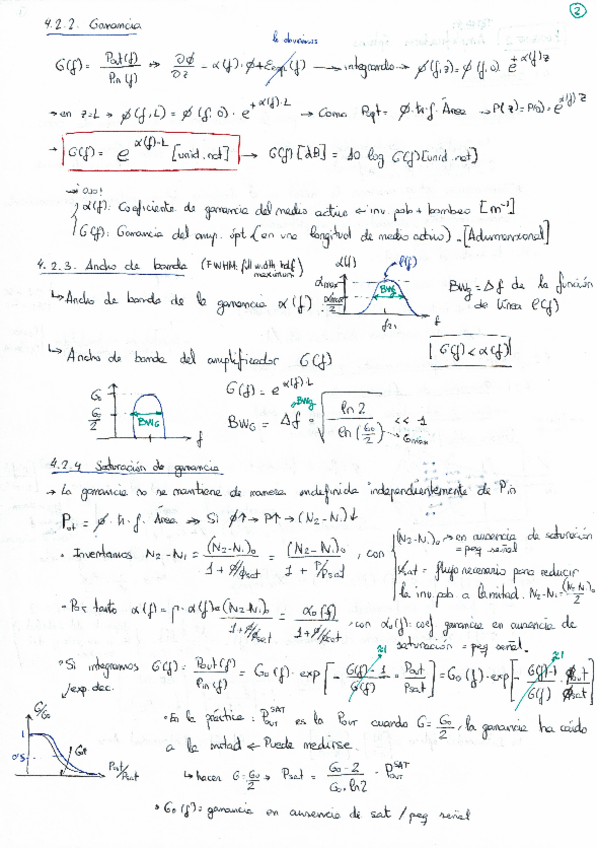 2
4.2.2. Ganancia
lo obviamos
G(f) = Pout(f) / Pin(f) → ∂Φ/∂z = α(f)·Φ + Eesp(f) → integrando → φ(f,z) = φ(f,0)·e^{+α(f)z}
→ en z=L → φ(f,L) = φ(f,0)·e^{+α(f)·L} → Como Popt = φ·h·f·Área → P(z) = P(0)·e^{α(f)z}
→ G(f) = e^{α(f)·L} [unid. nat] → G(f)[dB] = 10 log G(f)[unid. nat]
→ ojo!
α(f): Coeficiente de ganancia del medio activo ← inv. pob + bombeo [m⁻¹]
G(f): Ganancia del amp. ópt. (en una longitud de medio activo) - [Adimensional]
4.2.3. Ancho de banda (FWHM: full width half maximum)
↳ Ancho de banda de la ganancia α(f)
α(f)
l(f)
αmax
αmax/2
BWg
f21
f
BWg = Δf de la función de línea l(f)
G(f) < α(f)
↳ Ancho de banda del amplificador G(f)
G0
G0/2
BWG
f
G(f) = e^{α(f)·L}
BWG = Δf = BWg √(ln 2 / ln(G0/2)) << 1
Gmax
4.2.4 Saturación de ganancia
→ La ganancia no se mantiene de manera indefinida independientemente de Pin
Pout = φ·h·f·Área → Si φ↑ → P↑ → (N2-N1)↓
· Inventamos N2-N1 = (N2-N1)0 / (1+φ/φsat) = (N2-N1)0 / (1+P/Psat), con
(N2-N1)0 → en ausencia de saturación = peq señal
φsat = flujo necesario para reducir la inv. pob a la mitad. N2-N1 = (N2-N1)0/2
· Por tanto α(f) = (N2-N1)0 / (1+φ/φsat) = α0(f) / (1+φ/φsat), con α0(f): coef. ganancia en ausencia de saturación = peq señal.
· Si integramos G(f) = Pout(f) / Pin(f) = G0(f)·exp[- (G(f)-1)/G(f) · Pout/Psat] = G0(f)·exp[- (G(f)-1)/G(f) · φout/φsat]
≈1
≈1
exp dec.
G/G0
1
0'5
Pout/Psat
· En la práctica: Pout^SAT es la Pout cuando G = G0/2, la ganancia ha caído a la mitad ← Puede medirse.
↳ hacer G = G0/2 → Psat = (G0-2)/(G0·ln2) · Pout^SAT
· G0(f) = ganancia en ausencia de sat / peq señal